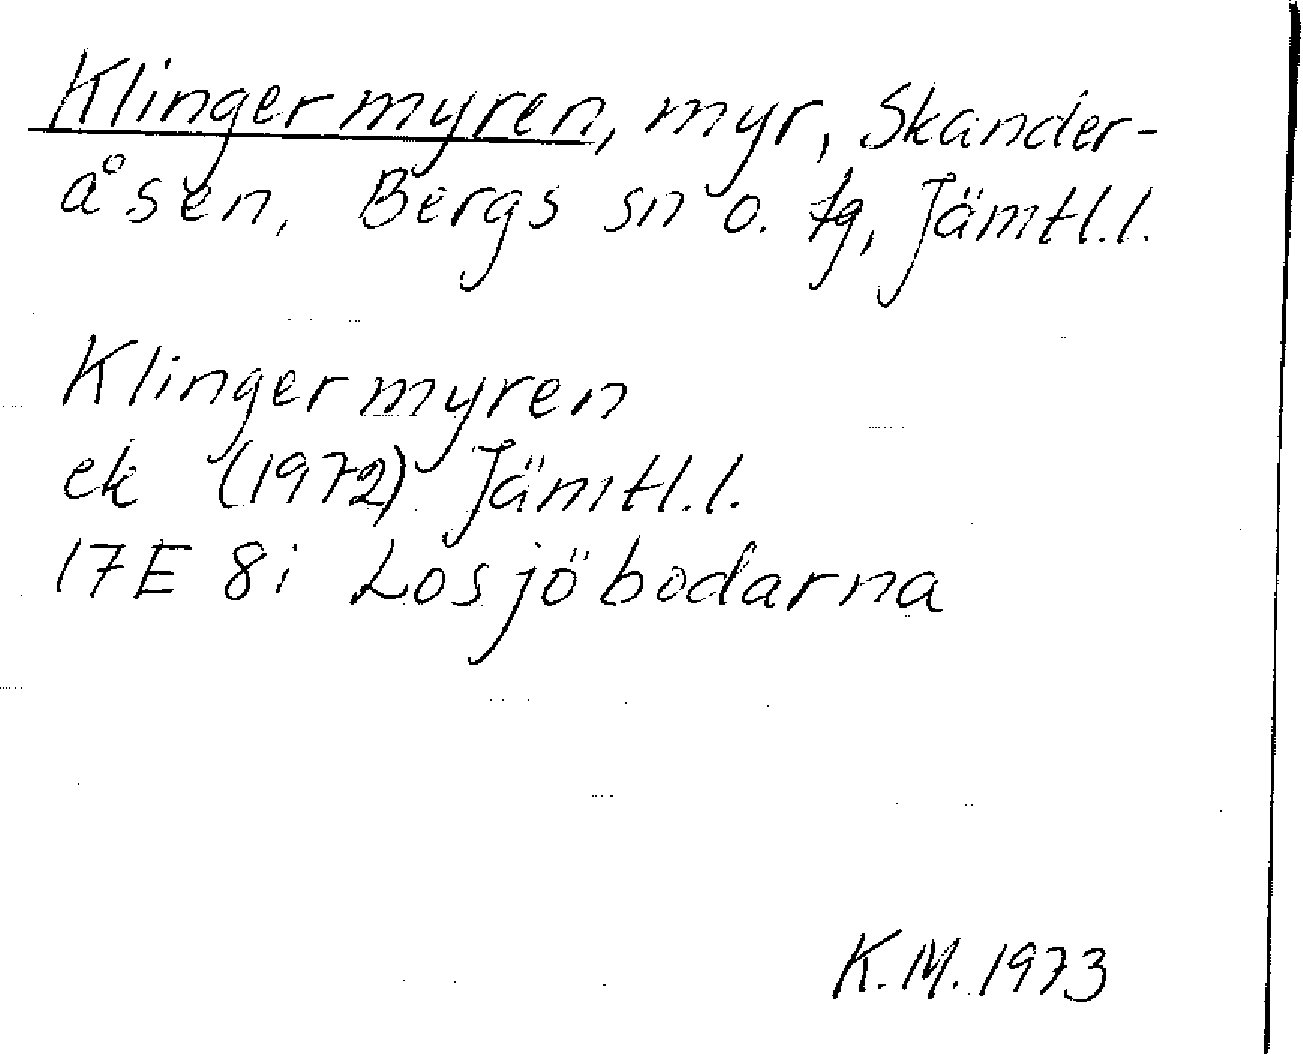 Klingermyren, myr, Skander-
åsen, Bergs sn o. tg, Jämtl.l.
Klingermyren
ek (1972) Jämtl.l.
17E 8i Losjöbodarna
K.M. 1973